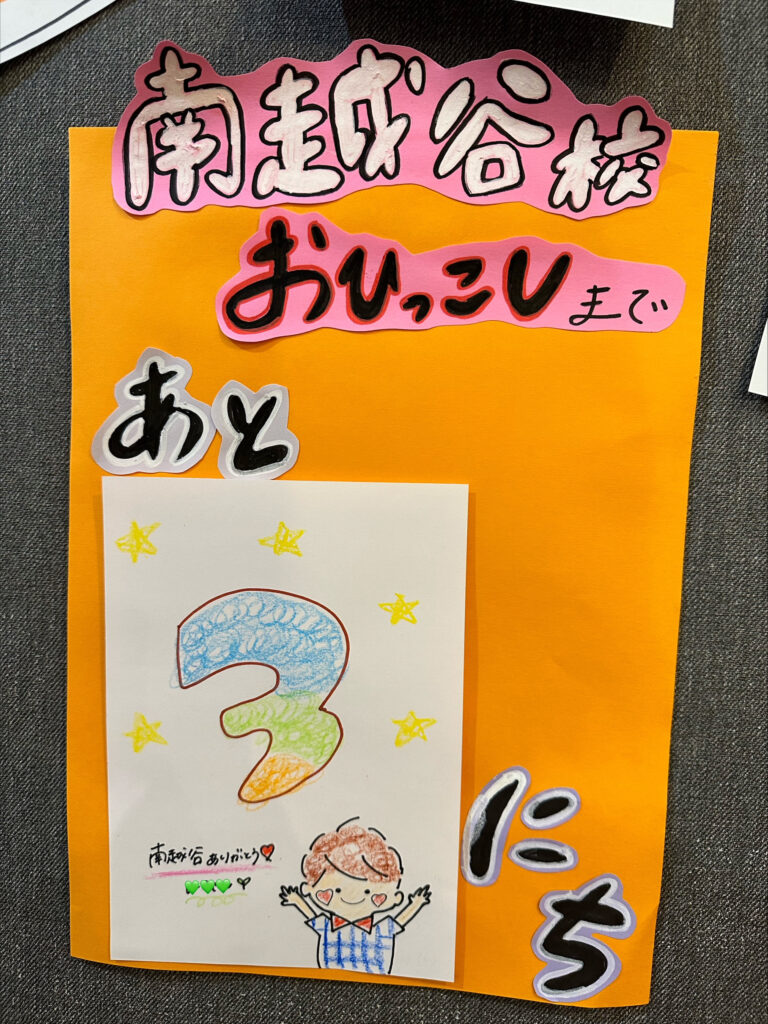 南越谷校
おひっこしまで
あと
3
にち
南越谷ありがとう